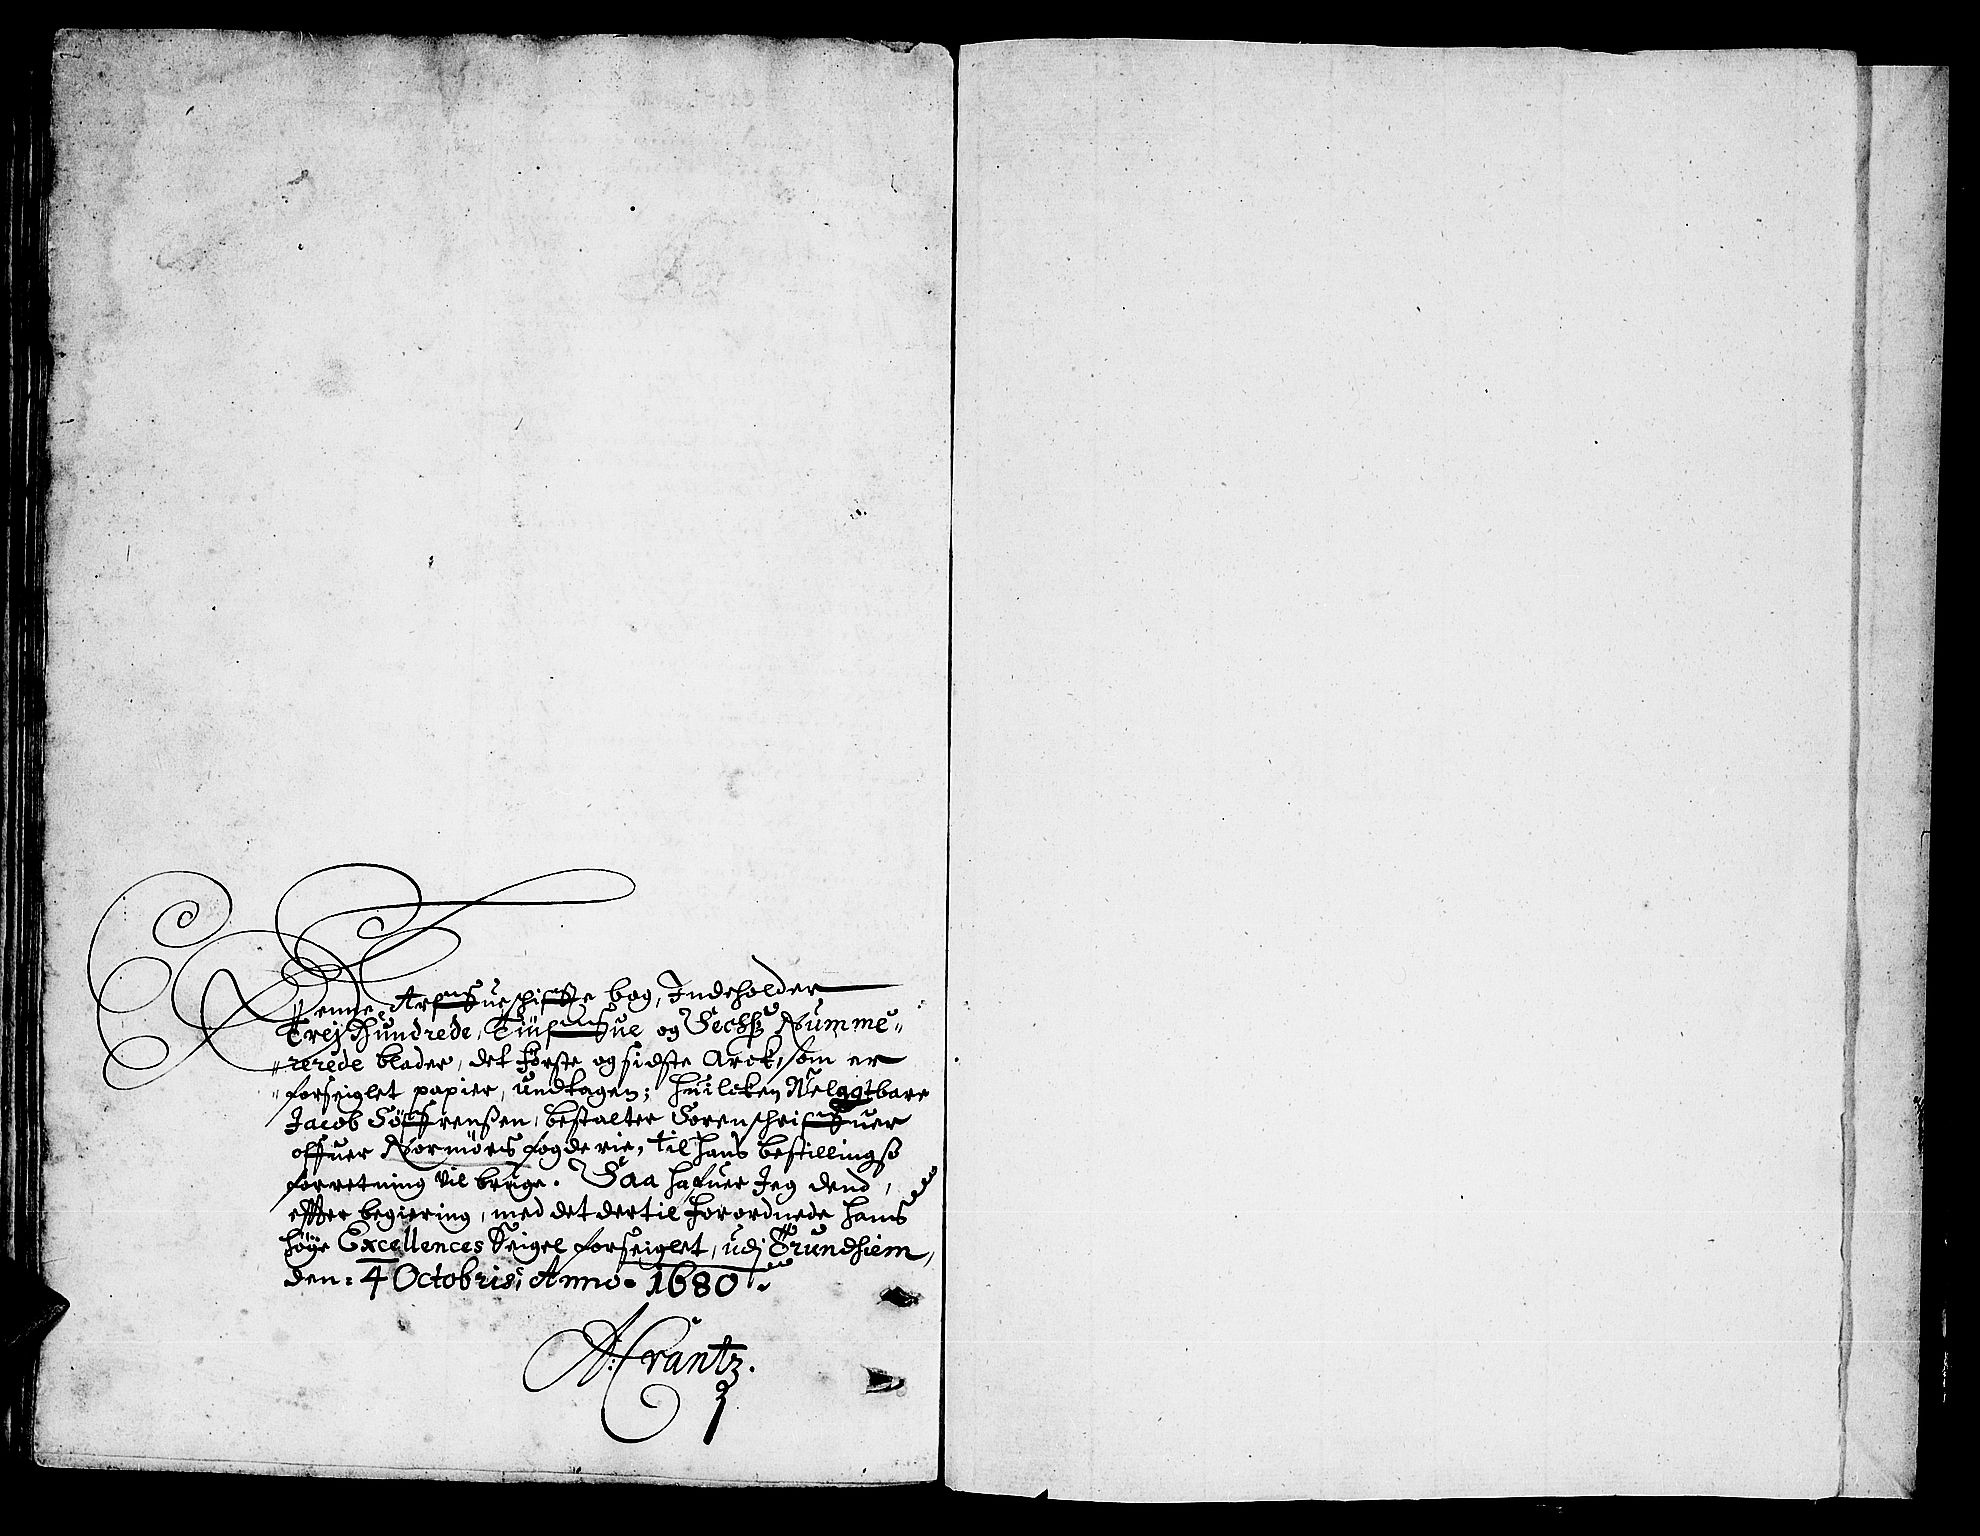 Denne Arfueschifte bog, Indeholder
Trej Hundrede, Tiufue og Sechs Numme„
„rerede blader, det første og sidste Arck, som er
„forseiglet papier, undtagen; huilcken Welagtbare
Jacob Sörrenßen, bestalter Sorenschrifuer
offuer Normörs fogderie, til hans bestillings
forretning til bruge. Saa hafuer Jeg dend,
effter begiering, med det dertil forordnede hans
høye Excellences Seigel forseiglet, udj Trundhiem,
den: 4 Octobris: Anno. 1680.
A: Crantz.